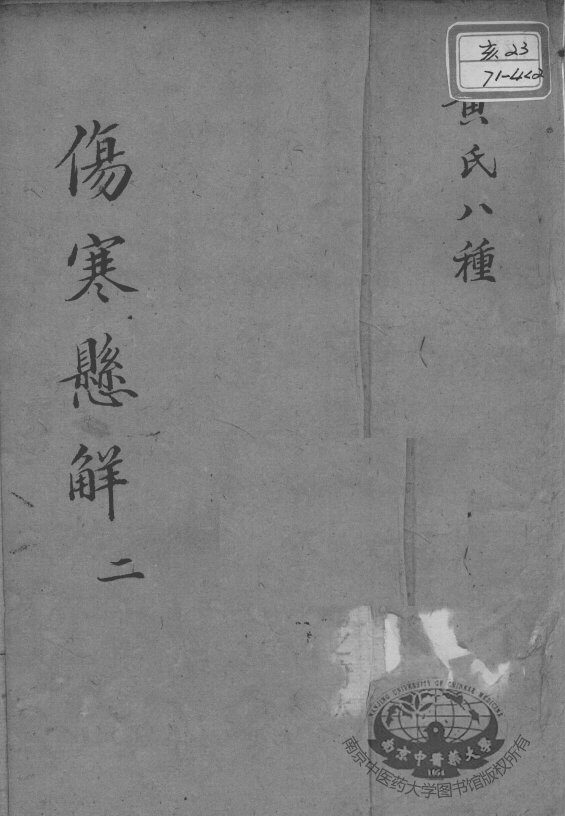 亥23
71-442
黃氏八種
傷寒懸解 二
NANJING UNIVERSITY OF CHINESE MEDICINE
南京中醫藥大學
1954
南京中医药大学图书馆版权所有